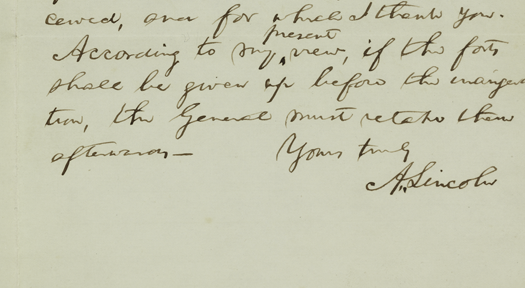 ceived, and for which I thank you.
According to my present view, if the forts
shall be given up before the inaugera
tion, the General must retake them
afterwards—
Yours truly
A. Lincoln